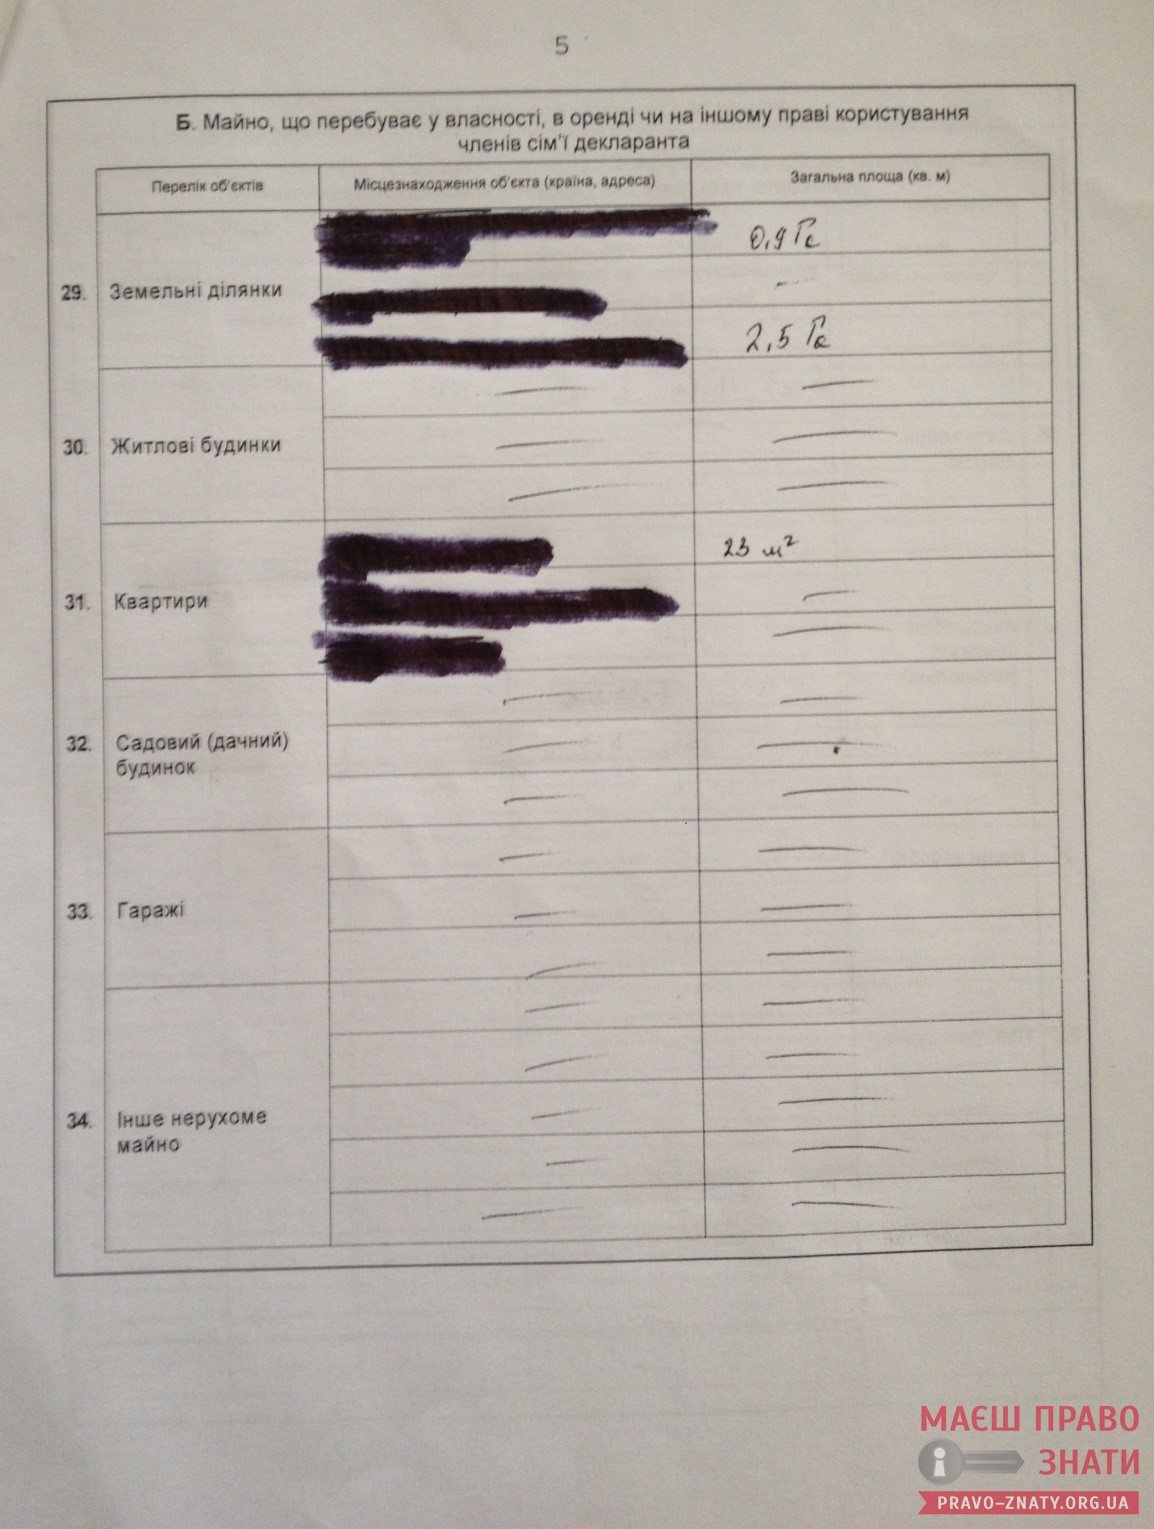 5
Б. Майно, що перебуває у власності, в оренді чи на іншому праві користування
членів сім'ї декларанта
Перелік об'єктів Місцезнаходження об'єкта (країна, адреса) Загальна площа (кв. м)
0,9 Га
29. Земельні ділянки
2,5 Га
30. Житлові будинки
23 м²
31. Квартири
32. Садовий (дачний)
будинок
33. Гаражі
34. Інше нерухоме
майно
МАЄШ ПРАВО
ЗНАТИ
PRAVO-ZNATY.ORG.UA